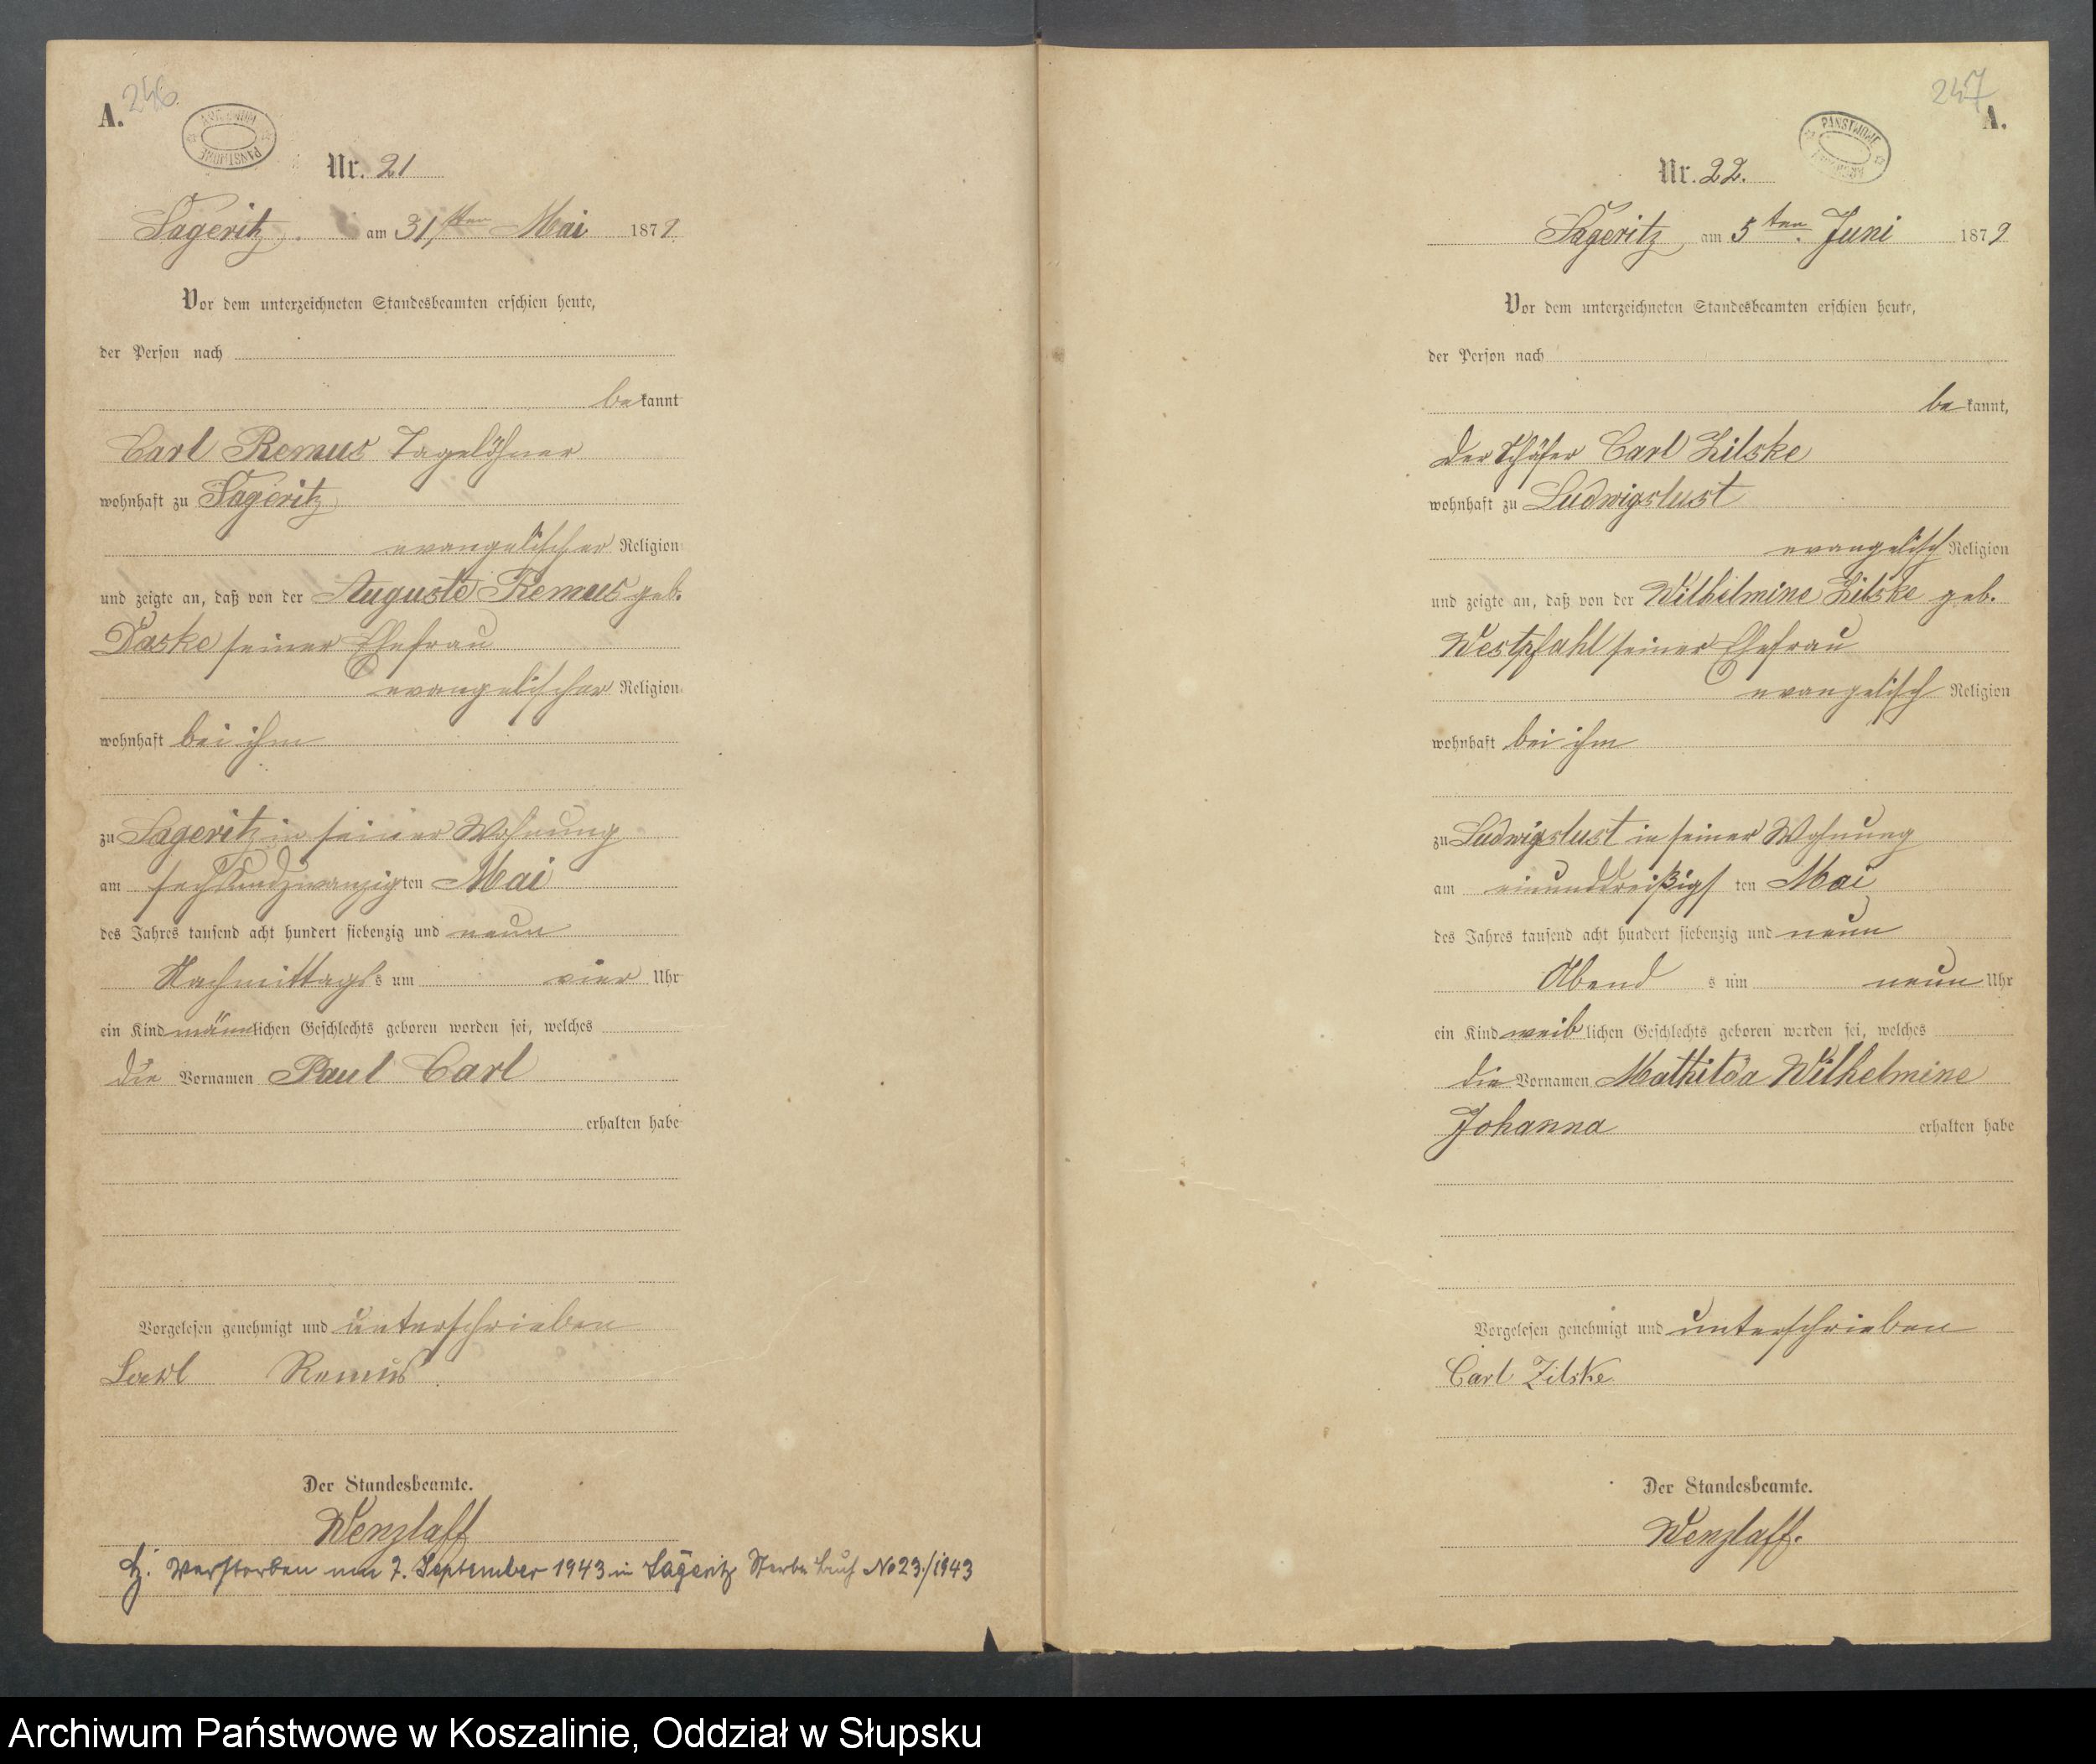 246
A.
ARCHIWUM PAŃSTWOWE
Nr. 21
Sageritz am 31sten Mai 1879
Vor dem unterzeichneten Standesbeamten erschien heute,
der Person nach
bekannt
Carl Remus Tagelöhner
wohnhaft zu Sageritz
evangelischer Religion
und zeigte an, daß von der Auguste Remus geb.
Daske seiner Ehefrau
evangelischer Religion
wohnhaft bei ihm
zu Sageritz in seiner Wohnung
am sechsundzwanzigten Mai
des Jahres tausend acht hundert siebenzig und neun
Nachmittags um vier Uhr
ein Kind männlichen Geschlechts geboren worden sei, welches
die Vornamen Paul Carl
erhalten habe
Vorgelesen genehmigt und unterschrieben
Carl Remus
Der Standesbeamte.
Wenzlaff
Verstorben am 7. September 1943 in Sageritz Sterbebuch No 23/1943
247
A.
PAŃSTWOWE
Nr. 22.
Sageritz am 5ten Juni 1879
Vor dem unterzeichneten Standesbeamten erschien heute,
der Person nach
bekannt,
der Schäfer Carl Zilske
wohnhaft zu Ludwigslust
evangelisch Religion
und zeigte an, daß von der Wilhelmine Zilske geb.
Westpfahl seiner Ehefrau
evangelisch Religion
wohnhaft bei ihm
zu Ludwigslust in seiner Wohnung
am einunddreißigsten Mai
des Jahres tausend acht hundert siebenzig und neun
Abends um neun Uhr
ein Kind weiblichen Geschlechts geboren worden sei, welches
die Vornamen Mathilda Wilhelmine
Johanna erhalten habe
Vorgelesen genehmigt und unterschrieben
Carl Zilske
Der Standesbeamte.
Wenzlaff.
Archiwum Państwowe w Koszalinie, Oddział w Słupsku